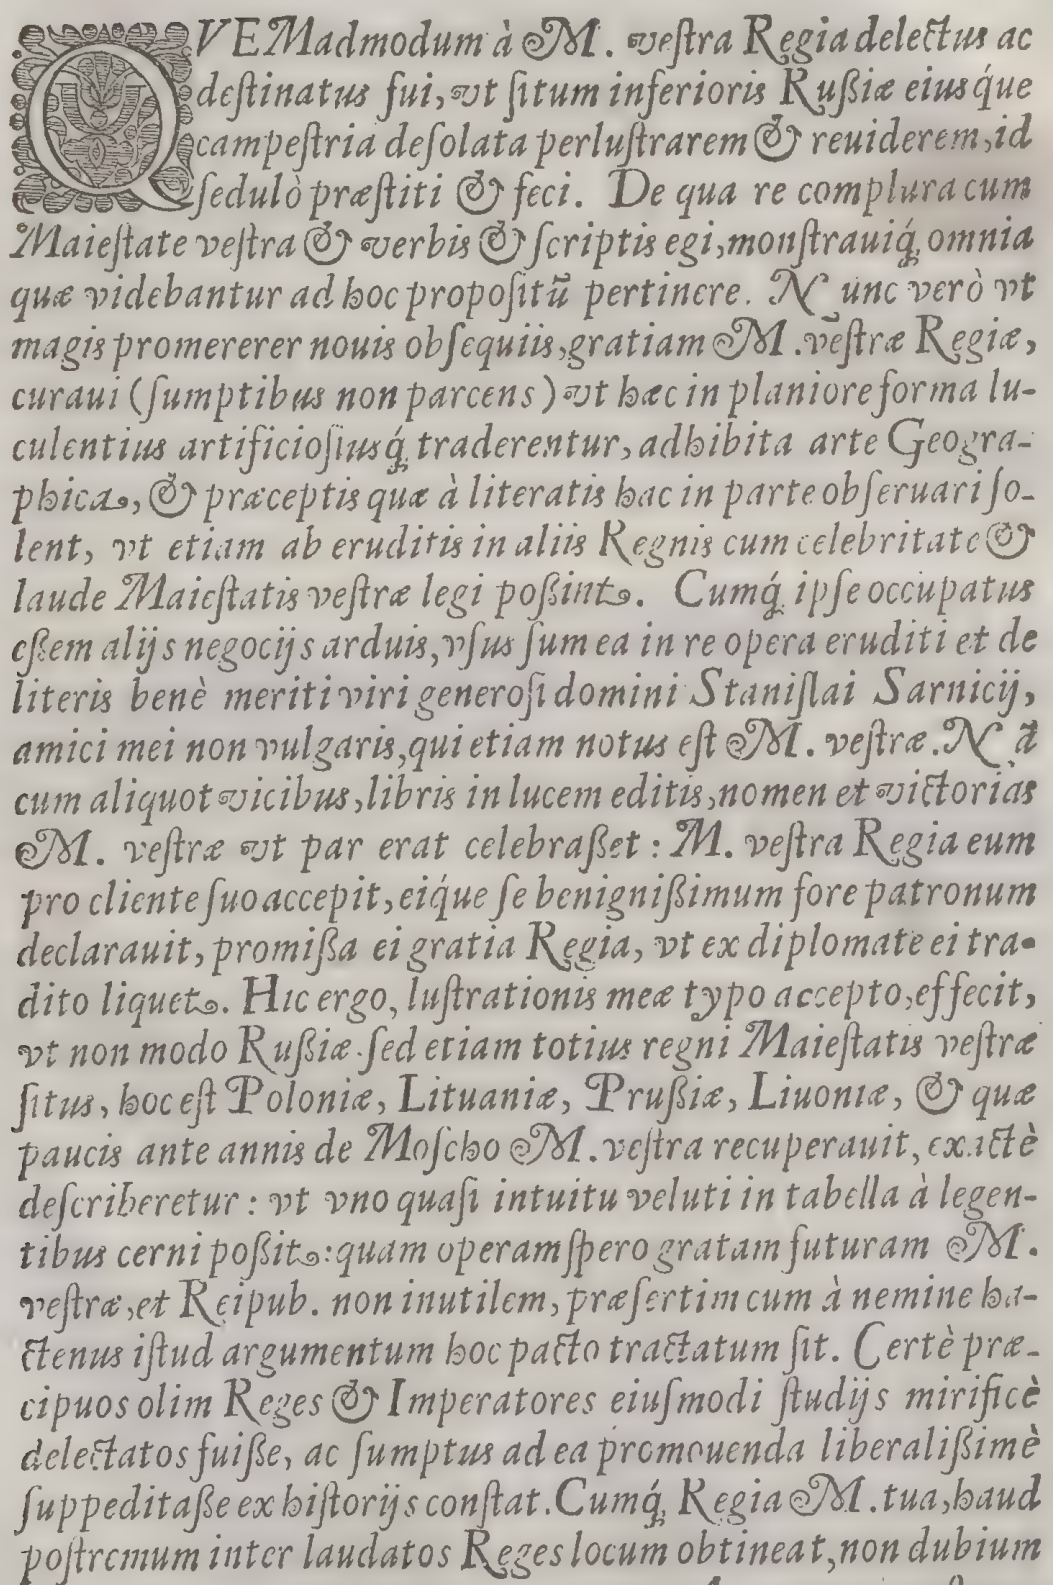 QVEMadmodum à M. veſtra Regia delectus ac
deſtinatus fui, vt ſitum inferioris Rußiæ eiusq́ue
campeſtria deſolata perluſtrarem & reuiderem, id
ſedulò præſtiti & feci. De qua re complura cum
Maieſtate veſtra & verbis & ſcriptis egi, monſtrauiq́; omnia
quæ videbantur ad hoc propoſitũ pertinere. Nunc verò vt
magis promererer nouis obſequiis, gratiam M. veſtræ Regiæ,
curaui (ſumptibus non parcens) vt hæc in planiore forma lu-
culentius artificioſiusq́; traderentur, adhibita arte Geogra-
phica, & præceptis quæ à literatis hac in parte obſeruari ſo-
lent, vt etiam ab eruditis in aliis Regnis cum celebritate &
laude Maieſtatis veſtræ legi poßint. Cumq́; ipſe occupatus
eßem alijs negocijs arduis, vſus ſum ea in re opera eruditi et de
literis benè meriti viri generoſi domini Staniſlai Sarnicij,
amici mei non vulgaris, qui etiam notus eſt M. veſtræ. Nã
cum aliquot vicibus, libris in lucem editis, nomen et victorias
M. veſtræ vt par erat celebraßet : M. veſtra Regia eum
pro cliente ſuo accepit, eiq́ue ſe benignißimum fore patronum
declarauit, promißa ei gratia Regia, vt ex diplomate ei tra-
dito liquet. Hic ergo, luſtrationis meæ typo accepto, effecit,
vt non modo Rußiæ ſed etiam totius regni Maieſtatis veſtræ
ſitus, hoc eſt Poloniæ, Lituaniæ, Prußiæ, Liuoniæ, & quæ
paucis ante annis de Moſcho M. veſtra recuperauit, exactè
deſcriberetur : vt vno quaſi intuitu veluti in tabella à legen-
tibus cerni poßit : quam operam ſpero gratam futuram M.
veſtræ, et Reipub. non inutilem, præſertim cum à nemine ha-
ctenus iſtud argumentum hoc pacto tractatum ſit. Certè præ-
cipuos olim Reges & Imperatores eiuſmodi ſtudijs mirificè
delectatos fuiße, ac ſumptus ad ea promouenda liberalißimè
ſuppeditaße ex hiſtorijs conſtat. Cumq́; Regia M. tua, haud
poſtremum inter laudatos Reges locum obtineat, non dubium